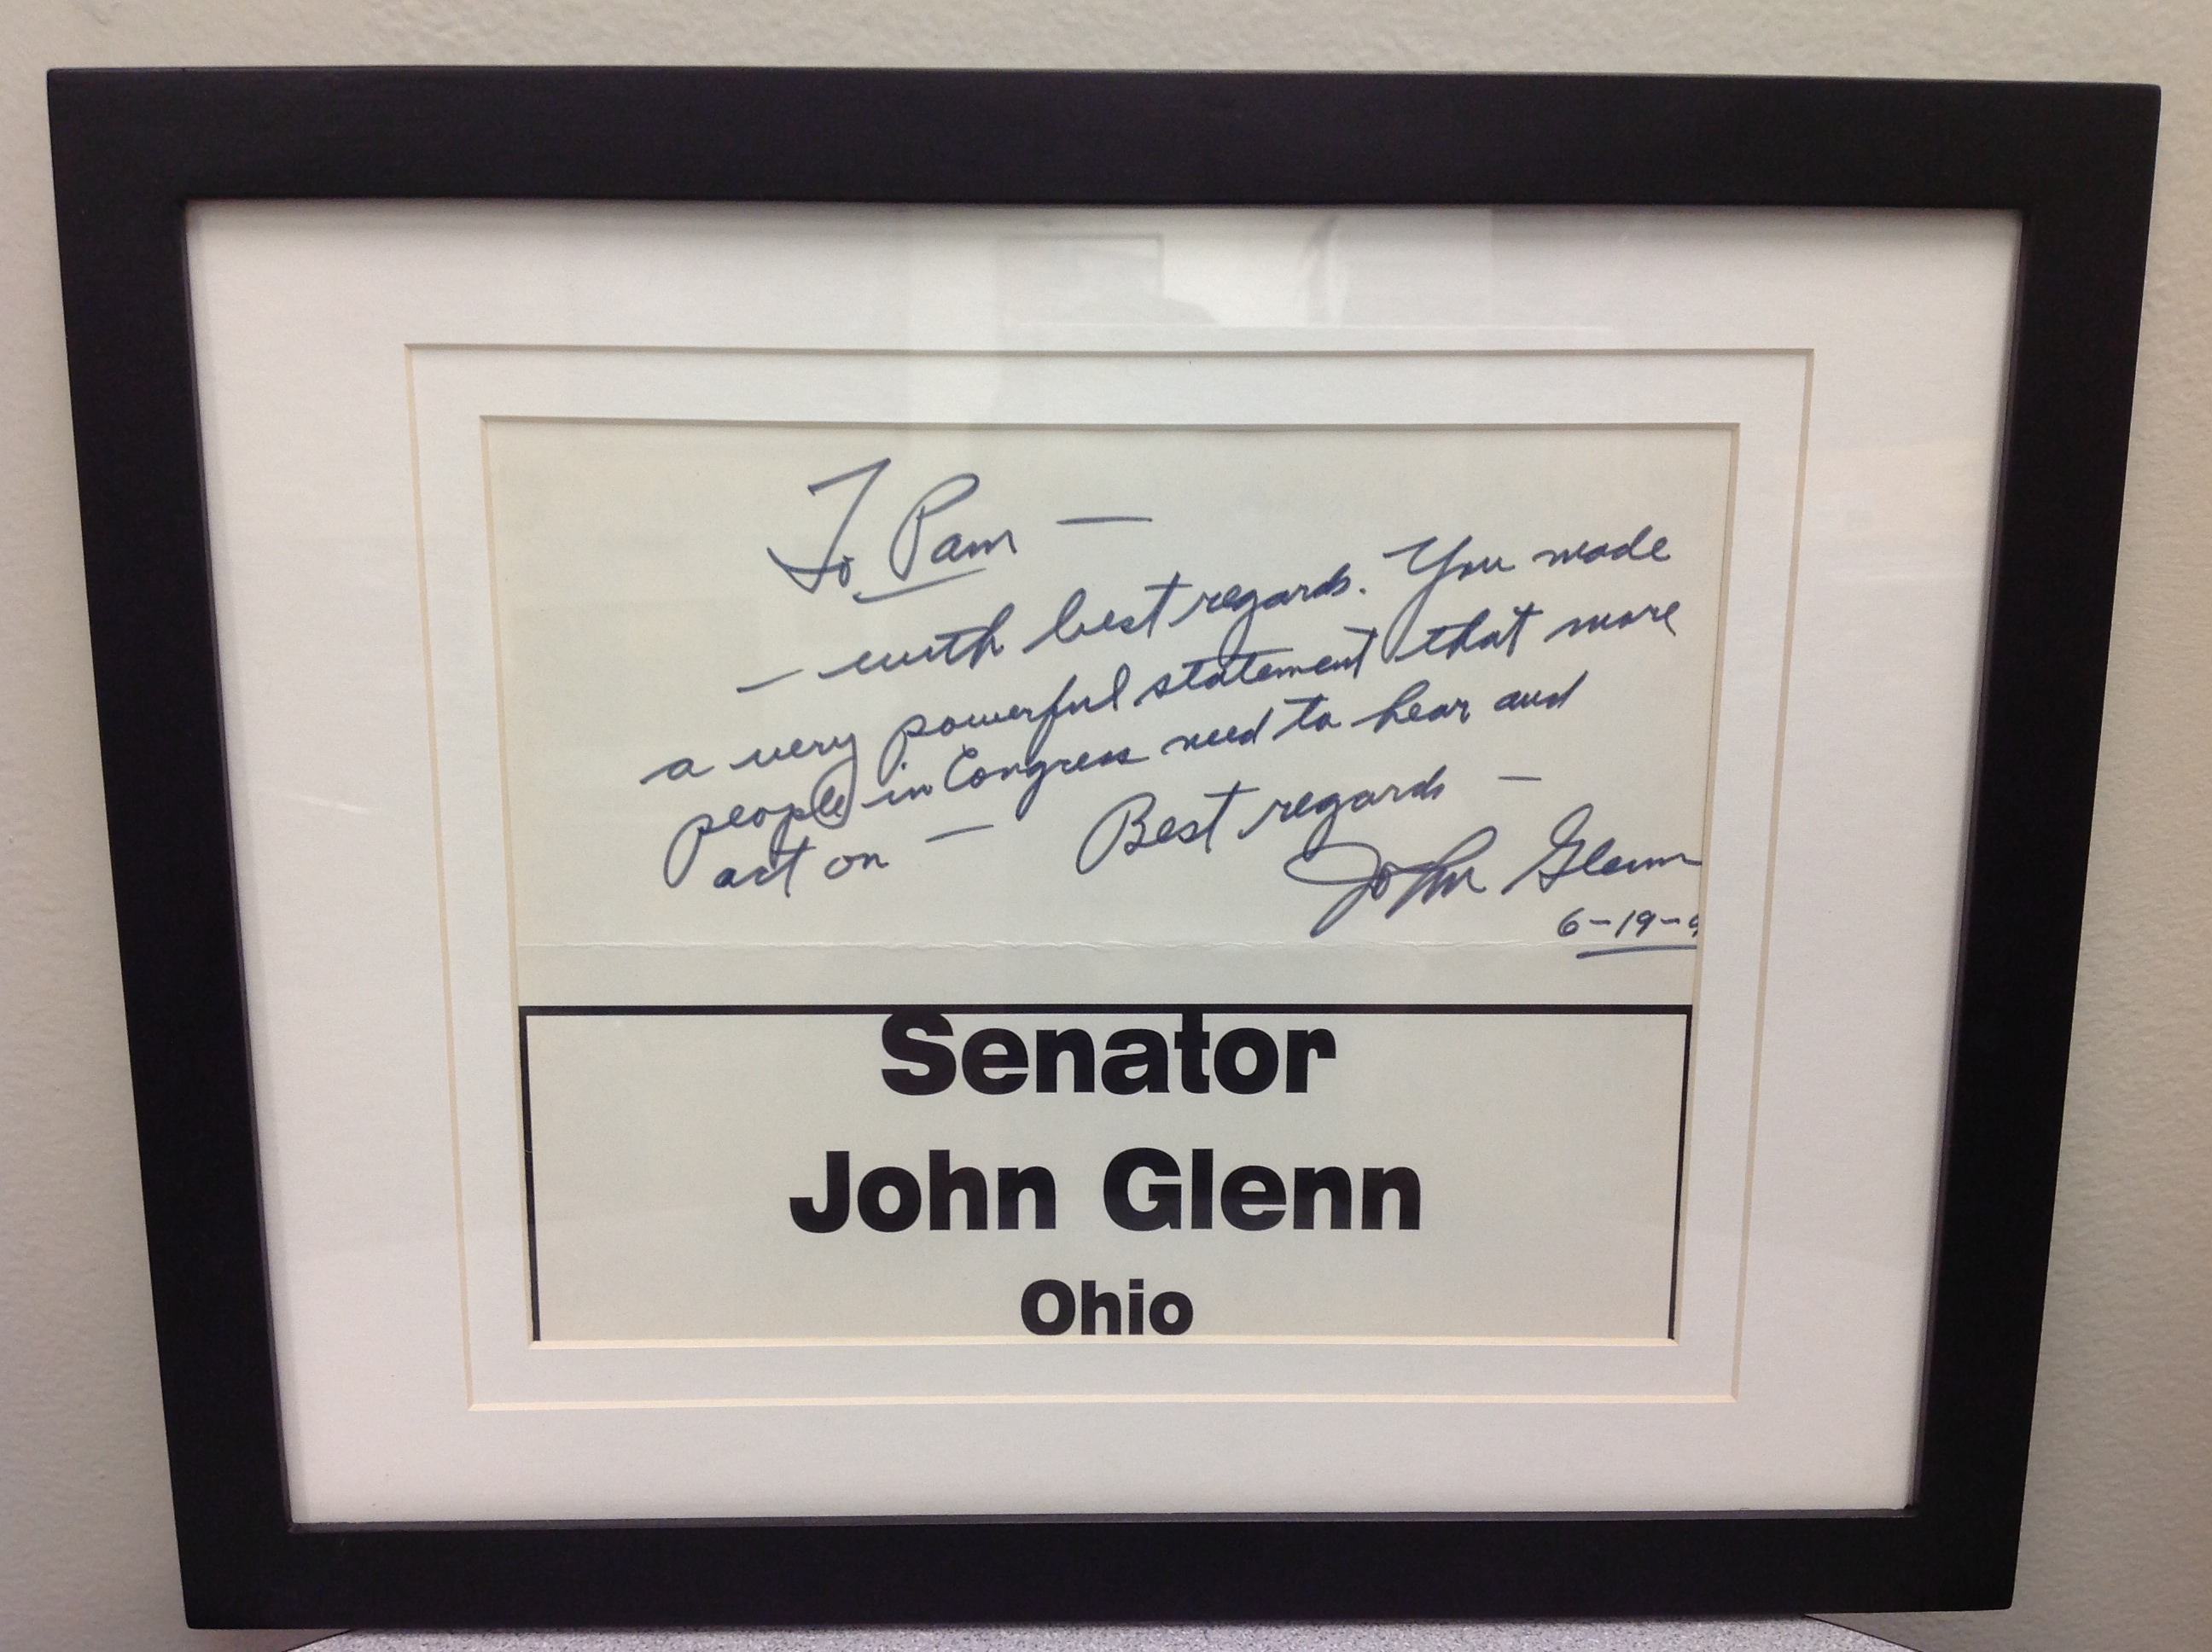 To Pam —
— with best regards. You made
a very powerful statement that more
people in Congress need to hear and
act on — Best regards —
John Glenn
6-19-9
Senator
John Glenn
Ohio